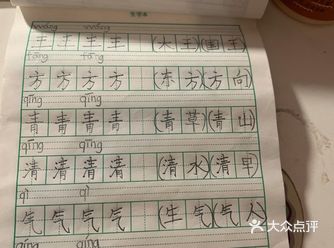 生字本
wáng wáng
王 王 王 王 (大王)(国王)
fāng fāng
方 方 方 方 (东方)(方向)
qīng qīng
青 青 青 青 (青草)(青山)
qīng qīng
清 清 清 清 (清水)(清早)
qì qì
气 气 气 气 (生气)(气人)
qíng qíng
大众点评